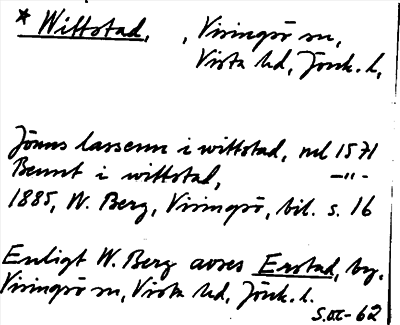 * Wittstad, , Visingsö sn,
Vista hd, Jönk. l,
Jönns lassenn i wittstad, ml 1571
Bennt i wittstad, -"-
1885, W. Berg, Visingsö, bil. s. 16
Enligt W. Berg avses Erstad, by,
Visingsö sn, Vista hd, Jönk. l.
-62